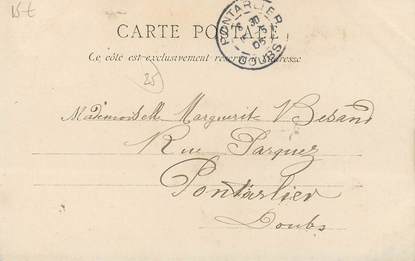 15€
CARTE POSTALE
PONTARLIER
DOUBS
Ce côté est exclusivement réservé à l'adresse
25
Mademoiselle Marguerite Besand
Rue Parguez
Pontarlier
Doubs